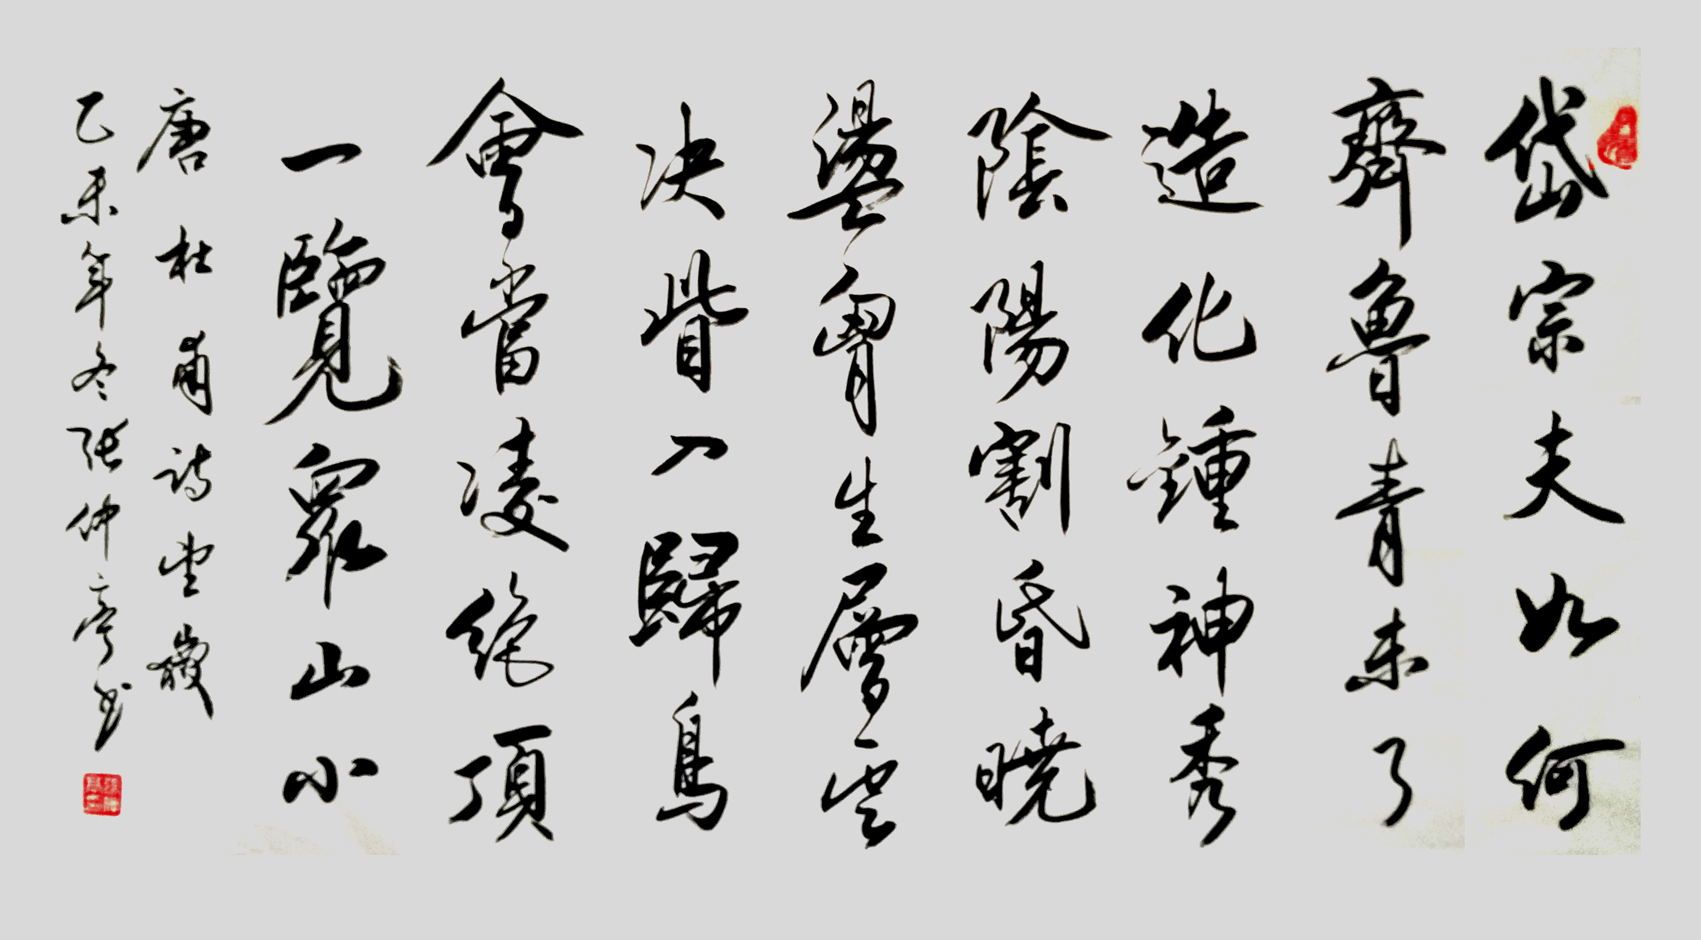 岱宗夫如何
齊魯青未了
造化鍾神秀
陰陽割昏曉
盪胷生層雲
决眥入歸鳥
會當凌絶頂
一覽眾山小
唐杜甫詩望嶽
乙未年冬張仲亭书